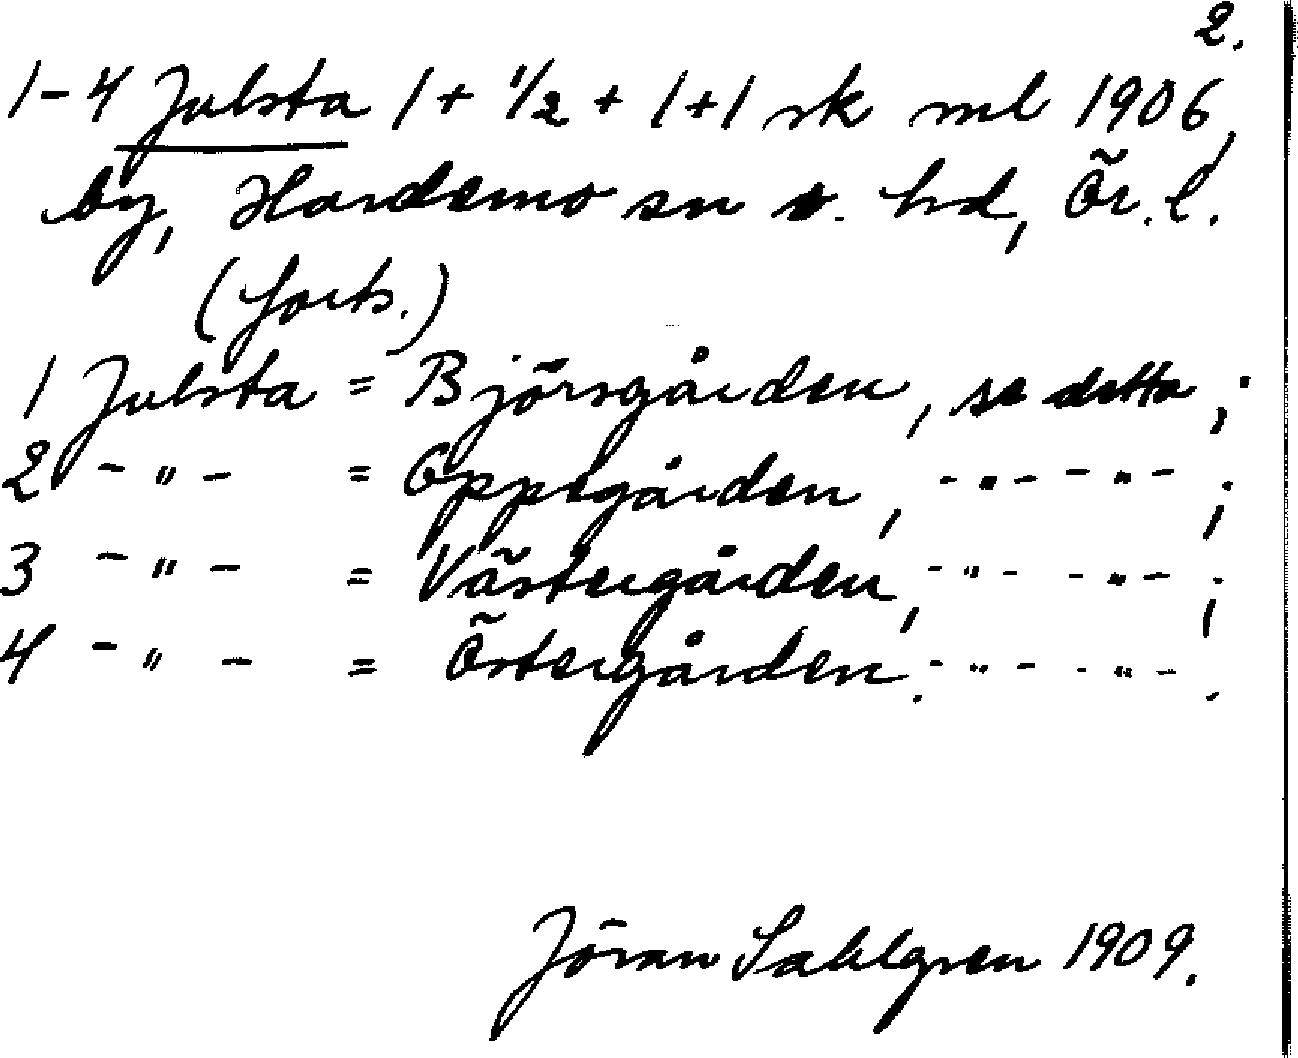 2.
1-4 Julsta 1 + 1/2 + 1+1 sk ml 1906,
by, Hardemo sn o. hd, Ör. l.
(forts.)
1 Julsta = Björsgården, se detta;
2 - " - = Oppegården, - " - - " - ;
3 - " - = Västergården, - " - - " - ;
4 - " - = Östergården. - " - - " - .
Jöran Sahlgren 1909.